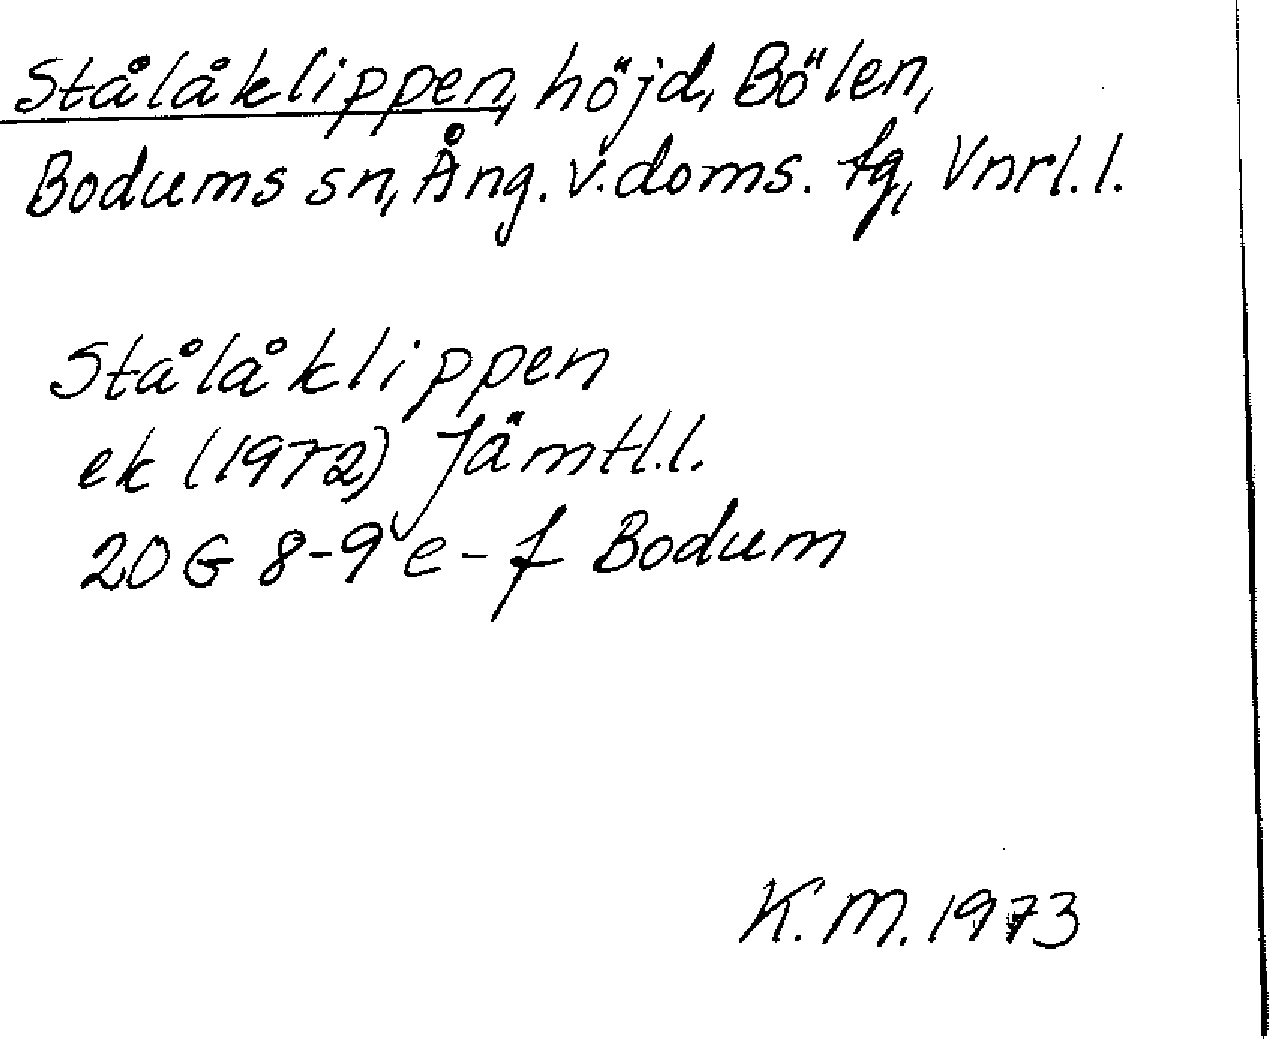 Stålåklippen, höjd, Bölen,
Bodums sn, Ång. v. doms. tg, Vnrl. l.
Stålåklippen
ek (1972) Jämtl. l.
20 G 8-9 e-f Bodum
K. M. 1973